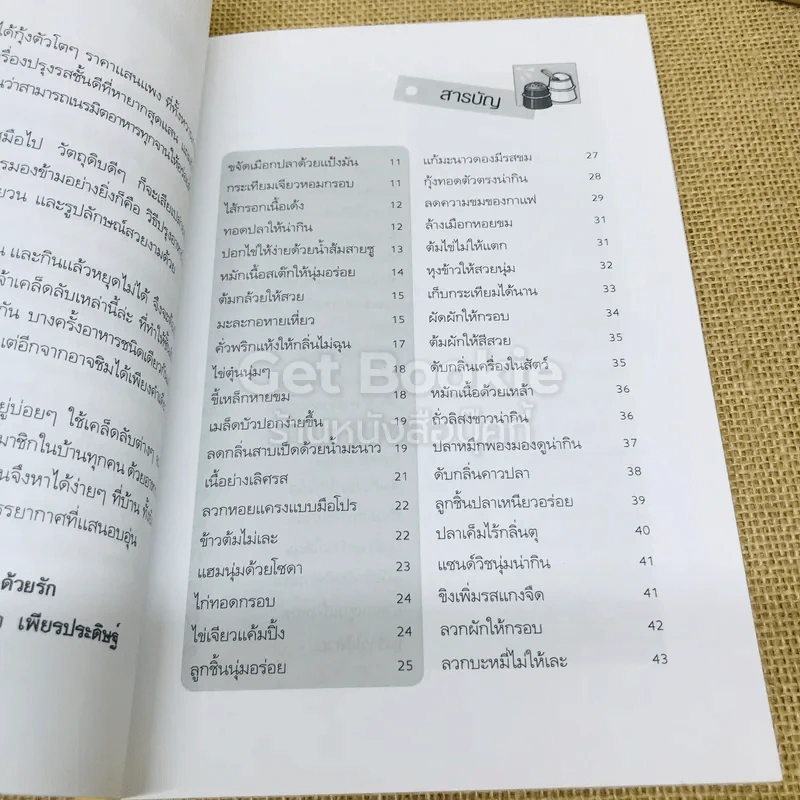 ได้กุ้งตัวโตๆ ราคาแสนแพง ที่ทั้งหวาน
เครื่องปรุงรสชั้นดีที่หายากสุดแสน
ว่าสามารถเนรมิตอาหารทุกจานให้อร่อย
มือไป วัตถุดิบดีๆ ก็จะเสียเปล่า
มองข้ามอย่างยิ่งก็คือ วิธีปรุง
และรูปลักษณ์สวยงามด้วย
และกินแล้วหยุดไม่ได้ จึง
เจ้าเคล็ดลับเหล่านี้ล่ะ ที่ทำให้
กัน บางครั้งอาหารชนิดเดียวกัน
แต่อีกจากอาจชิมได้เพียงคำเดียว
อยู่บ่อยๆ ใช้เคล็ดลับต่างๆ
สมาชิกในบ้านทุกคน ด้วยอาหาร
จึงหาได้ง่ายๆ ที่บ้าน ทั้งยัง
บรรยากาศที่แสนอบอุ่น
ด้วยรัก
เพียรประดิษฐ์
สารบัญ
ขจัดเมือกปลาด้วยแป้งมัน 11
กระเทียมเจียวหอมกรอบ 11
ไส้กรอกเนื้อเด้ง 12
ทอดปลาให้น่ากิน 12
ปอกไข่ให้ง่ายด้วยน้ำส้มสายชู 13
หมักเนื้อสเต๊กให้นุ่มอร่อย 14
ต้มกล้วยให้สวย 15
มะละกอหายเหี่ยว 15
คั่วพริกแห้งให้กลิ่นไม่ฉุน 17
ไข่ตุ๋นนุ่มๆ 18
ขี้เหล็กหายขม 18
เมล็ดบัวปอกง่ายขึ้น 19
ลดกลิ่นสาบเป็ดด้วยน้ำมะนาว 19
เนื้อย่างเลิศรส 21
ลวกหอยแครงแบบมือโปร 22
ข้าวต้มไม่เละ 22
แฮมนุ่มด้วยโซดา 23
ไก่ทอดกรอบ 24
ไข่เจียวแค้มปิ้ง 24
ลูกชิ้นนุ่มอร่อย 25
แก้มะนาวดองมีรสขม 27
กุ้งทอดตัวตรงน่ากิน 28
ลดความขมของกาแฟ 29
ล้างเมือกหอยขม 31
ต้มไข่ไม่ให้แตก 31
หุงข้าวให้สวยนุ่ม 32
เก็บกระเทียมได้นาน 33
ผัดผักให้กรอบ 34
ต้มผักให้สีสวย 35
ดับกลิ่นเครื่องในสัตว์ 35
หมักเนื้อด้วยเหล้า 36
ถั่วลิสงขาวน่ากิน 36
ปลาหมึกพองมองดูน่ากิน 37
ดับกลิ่นคาวปลา 38
ลูกชิ้นปลาเหนียวอร่อย 39
ปลาเค็มไร้กลิ่นตุ 40
แซนด์วิชนุ่มน่ากิน 41
ขิงเพิ่มรสแกงจืด 41
ลวกผักให้กรอบ 42
ลวกบะหมี่ไม่ให้เละ 43
Get Bookie
ร้านหนังสือบุ๊คกี้